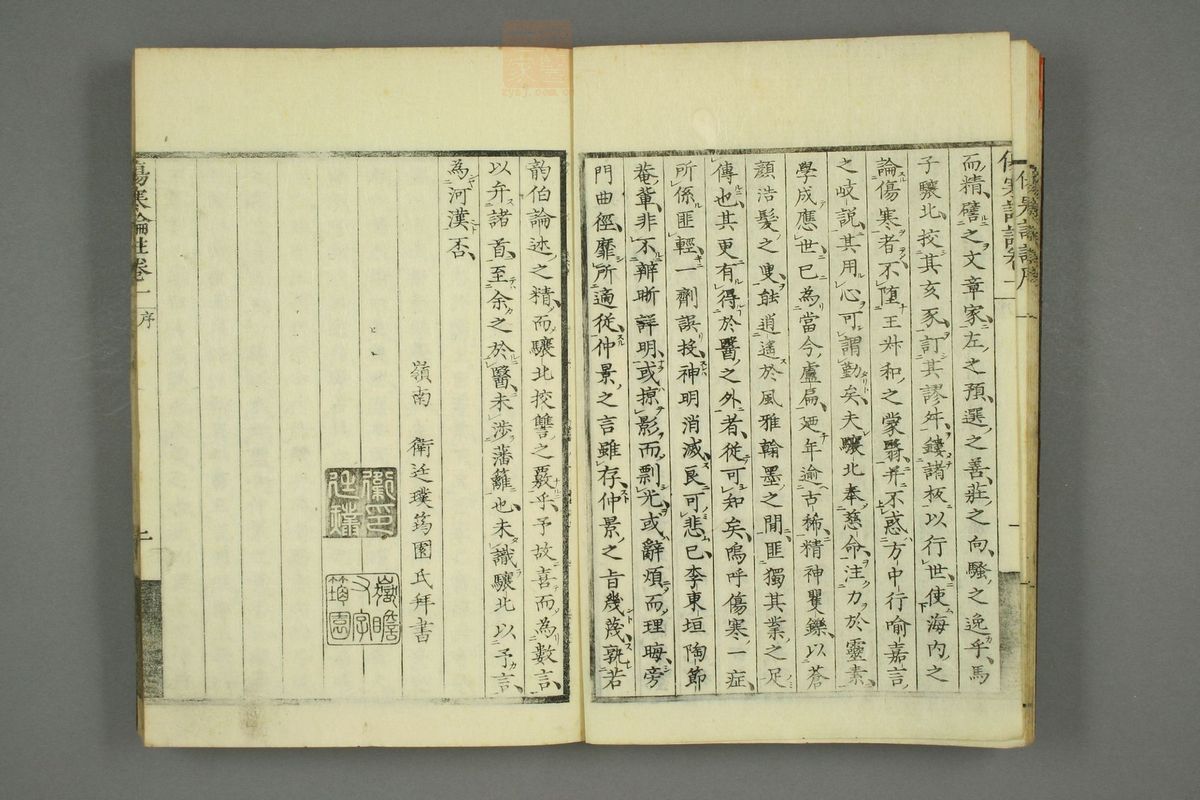 而精譬之文章家左之預選之善莊之向騷之逸乎馬
子驥北挍其亥豕訂其謬舛鋟諸板以行世使海内之
論傷寒者不墮王叔和之蒙翳并不惑方中行喻嘉言
之岐説其用心可謂勤矣夫驥北奉慈命注力於靈素
學成應世已為當今盧扁廼年逾古稀精神矍鑠以蒼
顏浩髮之叟能逍遙於風雅翰墨之間匪獨其業之足
傳也其更有得於醫之外者從可知矣嗚呼傷寒一症
所係匪輕一劑誤投神明消滅良可悲已李東垣陶節
菴輩非不辯晰詳明或掠影而剽光或辭煩而理晦旁
門曲徑靡所適從仲景之言雖存仲景之旨幾蔑孰若
韵伯論述之精而驥北挍讐之覈乎予故喜而為數言
以弁諸首至余之於醫未涉藩籬也未識驥北以予言
為河漢否
嶺南 衛廷璞筠園氏拜書
衛印廷璞
又字筠園
傷寒論註卷一 序